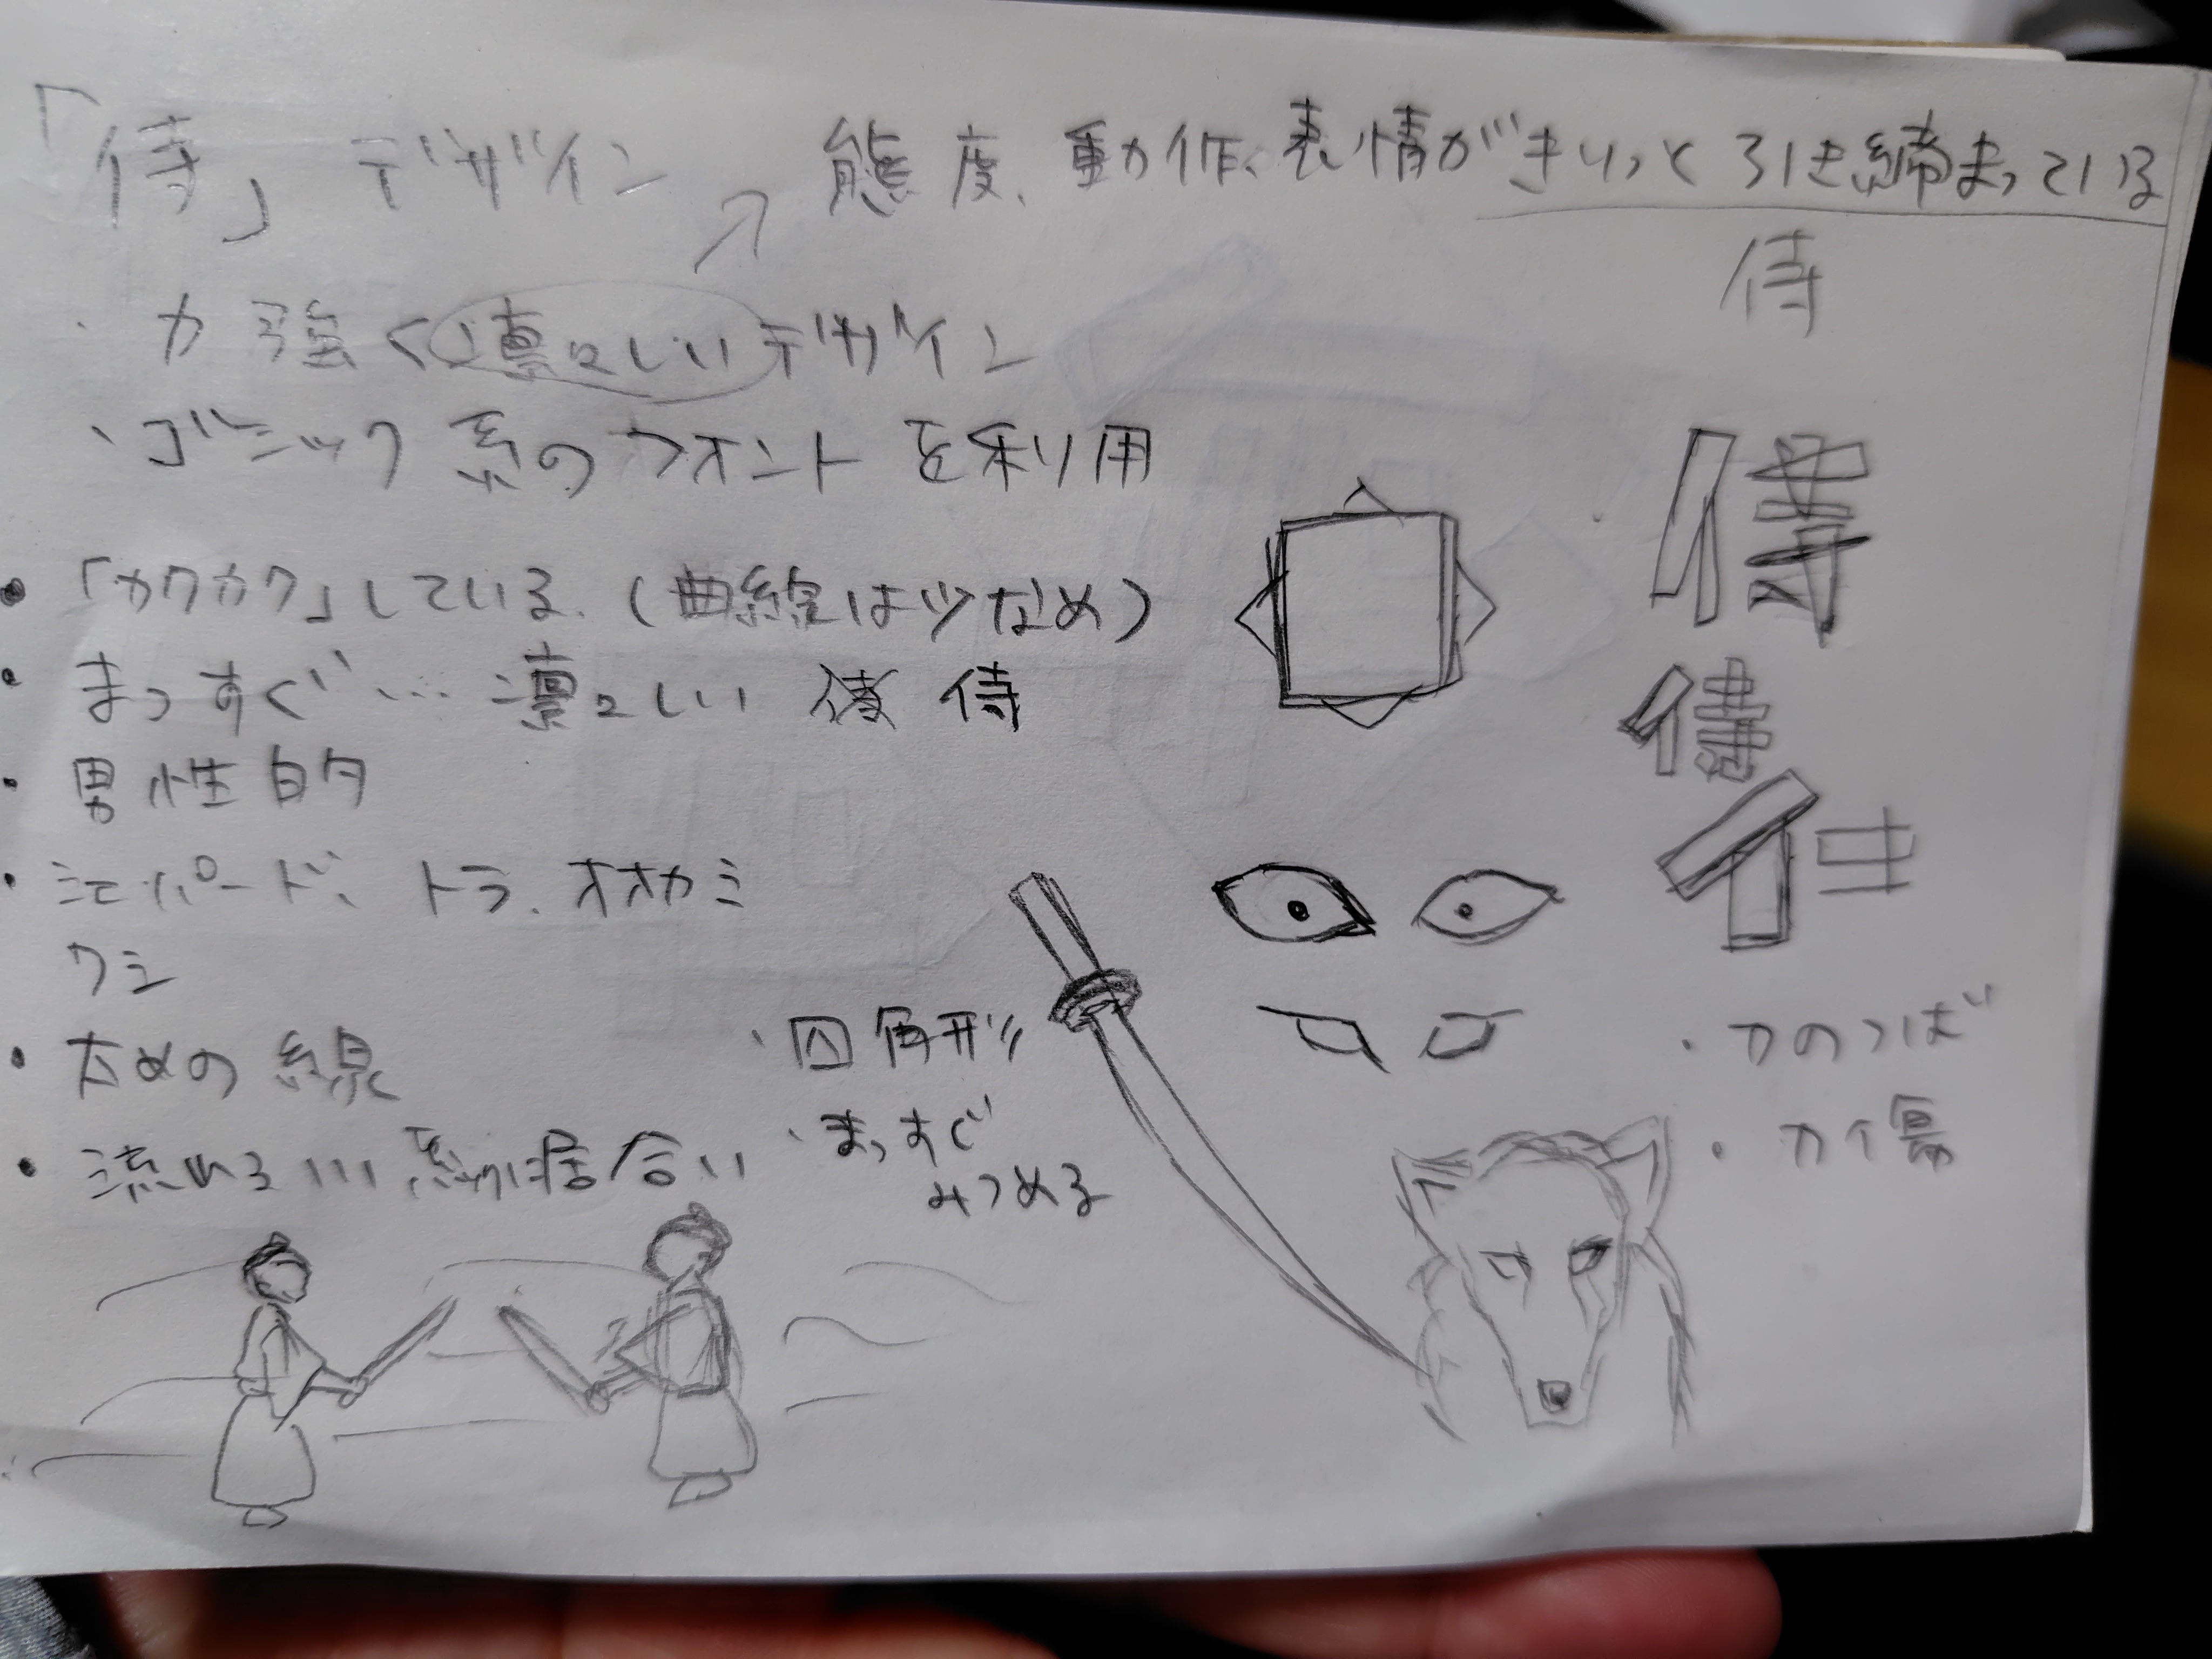 「侍」デザイン
態度、動作、表情がきりっと引き締まっている
侍
・力強く凛々しいデザイン
・ゴシック系のフォントを利用
・「カクカク」している。(曲線は少なめ)
・まっすぐ…凛々しい 侍
・男性的
・ジャパード、トラ、オオカミ
ワシ
・太めの線
・流れる川 居合い
・四角形
・まっすぐ
みつめる
侍
侍
イ
・刀のつば
・刀傷